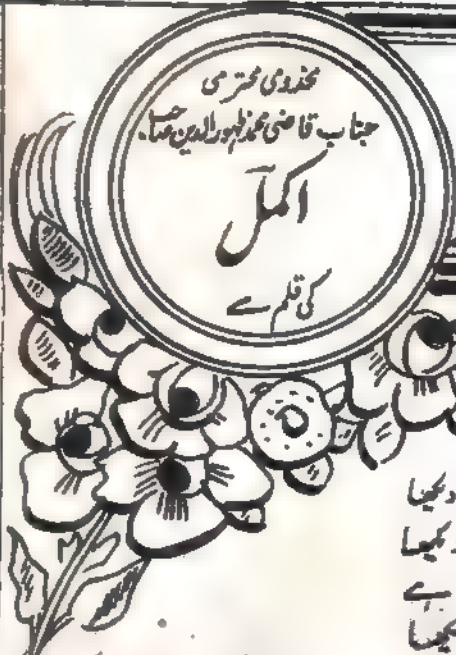 مخدومی محترمی
جناب قاضی محمد ظہورالدین صاحب
اکمل
کی قلم سے
دکھیا
دیکھا
ہے
دیکھا